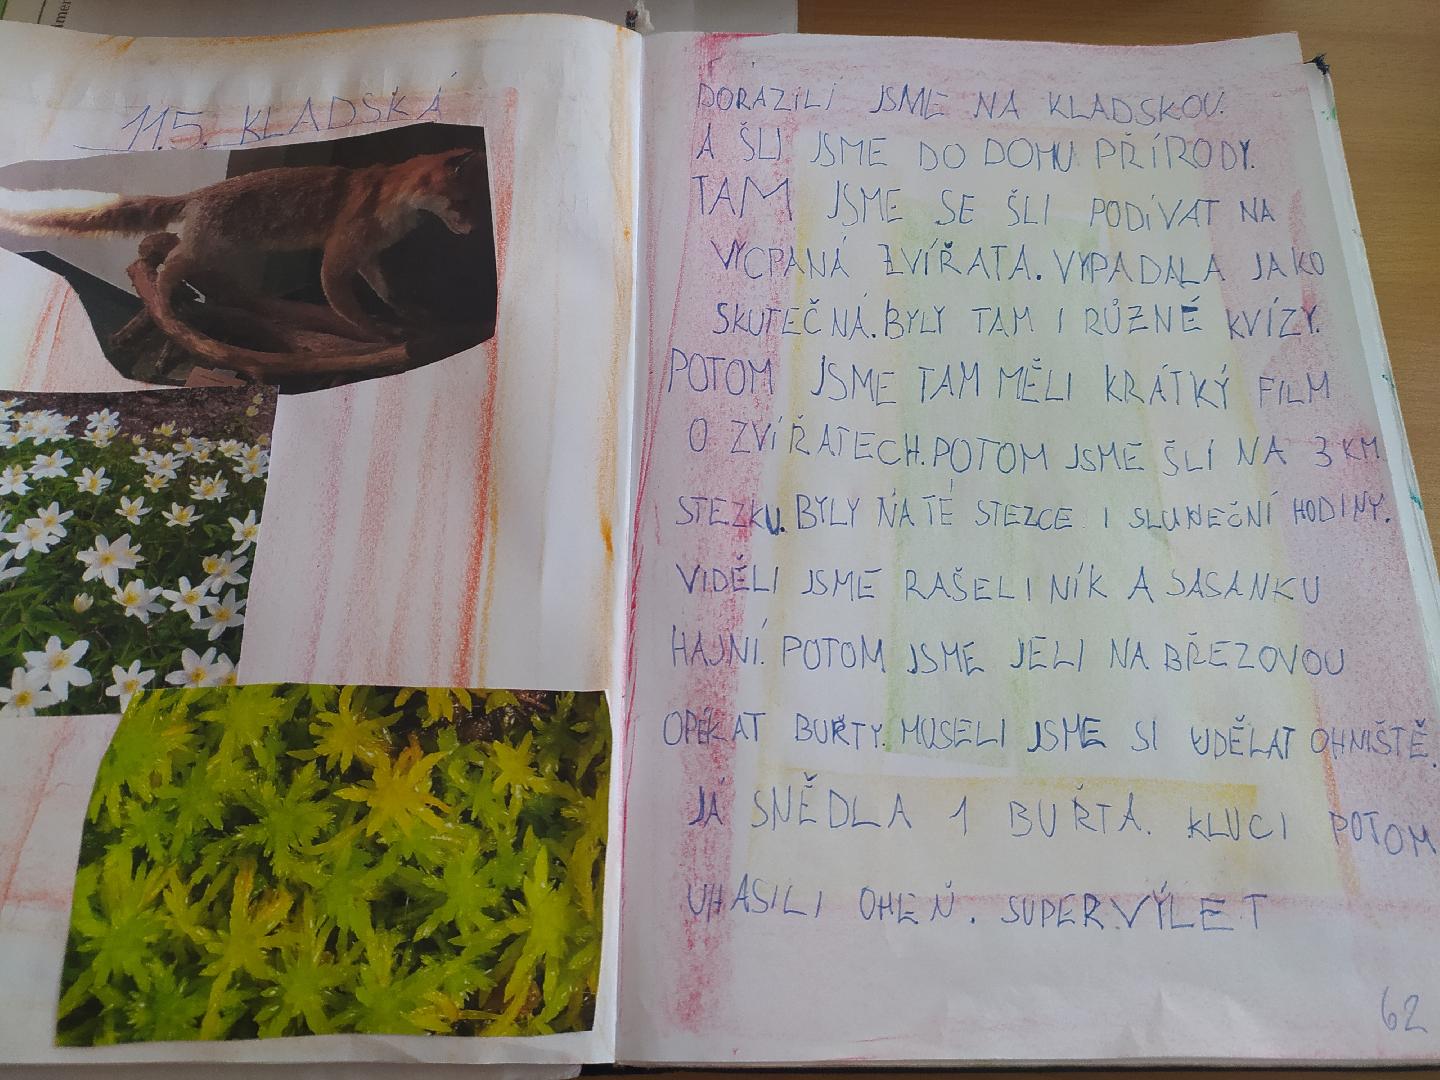 11.5. KLADSKÁ
DORAZILI JSME NA KLADSKOU.
A ŠLI JSME DO DOMU PŘÍRODY.
TAM JSME SE ŠLI PODÍVAT NA
VYCPANÁ ZVÍŘATA. VYPADALA JAKO
SKUTEČNÁ. BYLY TAM I RŮZNÉ KVÍZY.
POTOM JSME TAM MĚLI KRÁTKÝ FILM
O ZVÍŘATECH. POTOM JSME ŠLI NA 3 KM
STEZKU. BYLY NA TÉ STEZCE I SLUNEČNÍ HODINY.
VIDĚLI JSME RAŠELINÍK A SASANKU
HAJNÍ. POTOM JSME JELI NA BŘEZOVOU
OPÉKAT BUŘTY. MUSELI JSME SI UDĚLAT OHNIŠTĚ.
JÁ SNĚDLA 1 BUŘTA. KLUCI POTOM
UHASILI OHEŇ. SUPER VÝLET
62